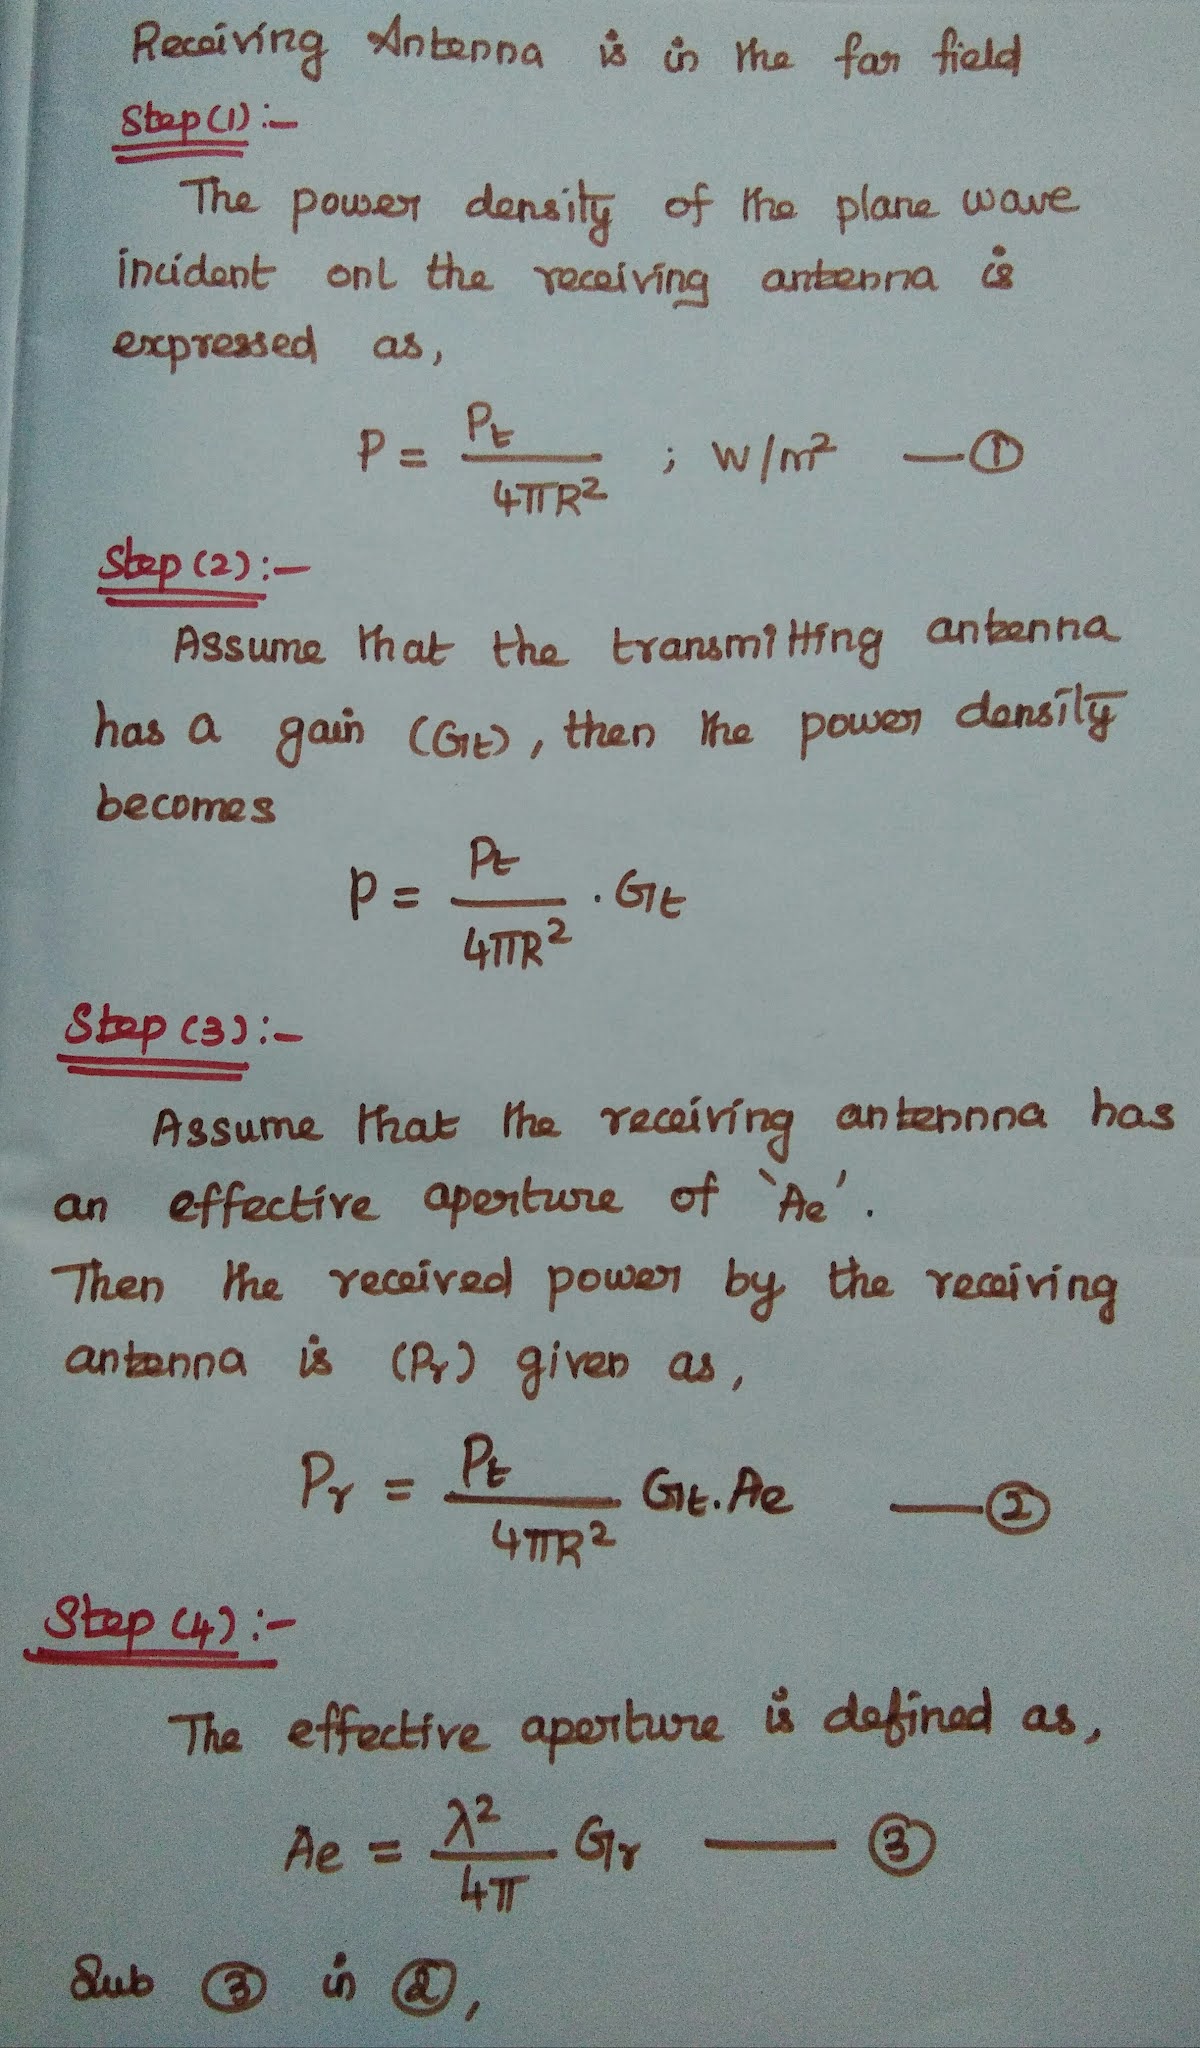 Receiving Antenna is in the far field
Step (1) :-
The power density of the plane wave
incident onl the receiving antenna is
expressed as,
P = Pt / 4πR² ; W/m² — ①
Step (2) :-
Assume that the transmitting antenna
has a gain (Gt), then the power density
becomes
P = Pt / 4πR² . Gt
Step (3) :-
Assume that the receiving antennna has
an effective aperture of 'Ae'.
Then the received power by the receiving
antenna is (Pr) given as,
Pr = Pt / 4πR² Gt. Ae — ②
Step (4) :-
The effective aperture is defined as,
Ae = λ² / 4π Gr — ③
Sub ③ in ②,